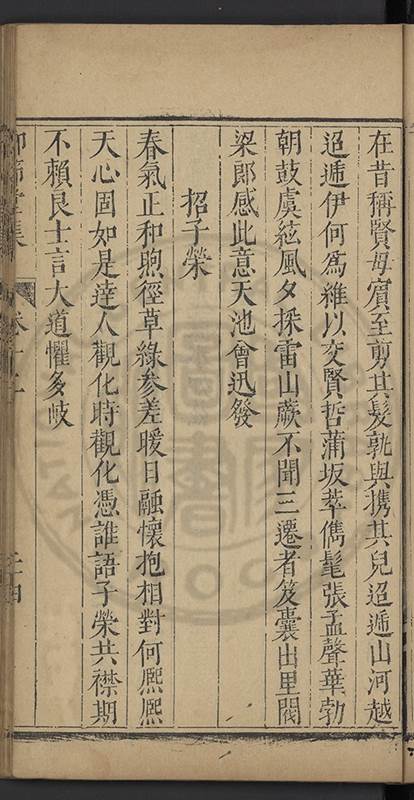 在昔稱賢母賓至剪其髮孰與携其兒迢遞山河越
迢遞伊何爲維以交賢哲蒲坂萃儁髦張孟聲華勃
朝鼓虞絃風夕採雷山蕨不聞三遷者笈囊出里閈
梁郎感此意天池會迅發
招子榮
春氣正和煦徑草綠參差暖日融懷抱相對何熈熈
天心固如是達人觀化時觀化憑誰語子榮共襟期
不賴良士言大道懼多岐
卷十二